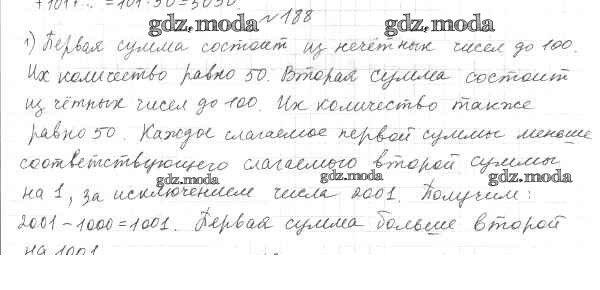 +101+... = 101·50=5050
gdz.moda №188 gdz.moda
1) Первая сумма состоит из нечётных чисел до 100.
Их количество равно 50. Вторая сумма состоит
из чётных чисел до 100. Их количество также
равно 50. Каждое слагаемое первой суммы меньше
соответствующего слагаемого второй суммы
gdz.moda gdz.moda gdz.moda
на 1, за исключением числа 2001. Получим:
2001-1000=1001. Первая сумма больше второй
на 1001